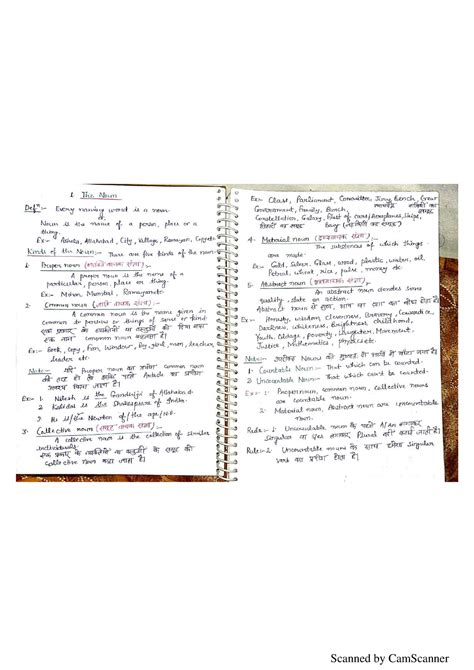 1. The Noun
Defⁿ:- Every naming word is a noun
or,
Noun is the name of a person, place or a
thing.
Ex- Ashoka, Allahabad, City, Village, Ramayan,
Kinds of the Noun:- There are five kinds of the noun-
1. Proper noun (व्यक्ति वाचक संज्ञा):-
A proper noun is the name of a
particular, person, place or thing.
Ex- Mohan, Mumbai, Ramayan etc.
2. Common noun (जाति वाचक संज्ञा):-
A common noun is the name given in
common to persons or things of same or kind
एक प्रकार के व्यक्तियों या वस्तुओं को दिया गया
एक नाम common noun कहलाता है।
Ex- Book, Copy, Pen, Window, boy, girl, man, teacher,
leader etc.
Note:- यदि Proper noun का प्रयोग common noun
की तरह हो तो इसके पहले Article का प्रयोग
किया जाता है।
Ex- 1. Nilesh is the Gandhiji of Allahabad.
2. Kalidas is the Shakespeare of India.
3. He is the Newton of the age.
3. Collective noun (समूह वाचक संज्ञा):-
A collective noun is the collection of similar
individuals.
एक प्रकार के व्यक्तियों या वस्तुओं के समूह को
collective noun कहा जाता है।
Ex- Class, Parliament, Committee, Jury, Bench,
Government, Family, Bench,
Constellation, Galaxy, Fleet of cars/Aeroplanes, Ships,
4. Material noun (द्रव्यवाचक संज्ञा):-
The substances of which things
are made.
Ex:- Gold, Silver, Glass, wood, plastic, water, oil,
Petrol, wheat, rice, pulse, money etc.
5. Abstract noun (भाववाचक संज्ञा):-
An abstract noun denotes some
quality, state or action.
Ex:- Honesty, wisdom, cleverness, Bravery, Cowardice,
Darkness, whiteness, Brightness, childhood,
Youth, Oldage, poverty, Laughter, Movement,
Justice, Mathematics, physics etc.
Note:-
1. Countable Noun:- That which can be counted.
2. Uncountable Noun:- That which can't be counted.
Ex- 1. Proper noun, common noun, collective nouns
are countable noun.
2. Material noun, Abstract noun are uncountable
noun.
Rule-1 Uncountable noun के पहले A/An
Rule-2 Uncountable nouns के साथ हमेशा singular
verb का प्रयोग होता है।
Scanned by CamScanner